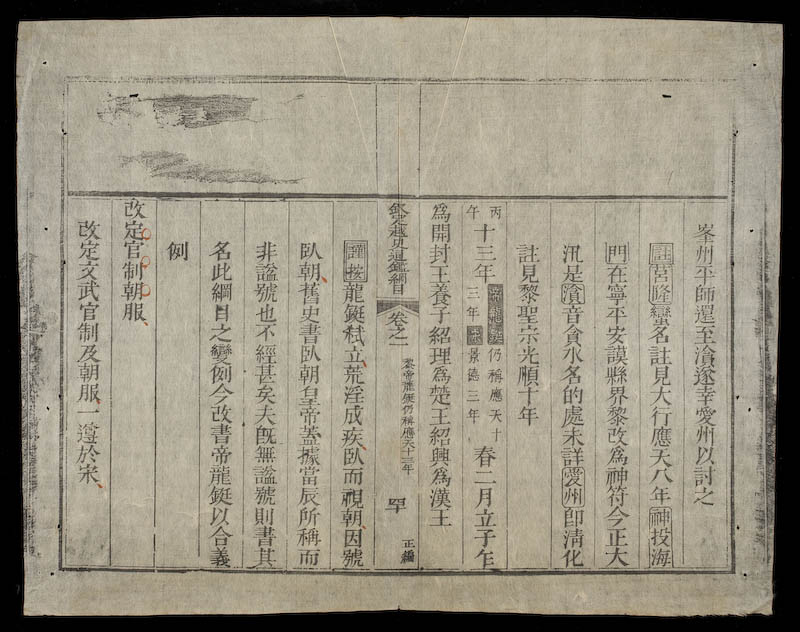 峯州平師還至澬遂幸愛州以討之
註莒隆蠻名註見大行應天八年神投海
門在寧平安謨縣界黎改為神符今正大
汛是澬音貪水名的處未詳愛州即清化
註見黎聖宗光順十年
丙午十三年
仍稱應天十三年
景德三年
春二月立子乍
為開封王養子紹理為楚王紹興為漢王
欽定越史通鑑綱目
卷之一
黎帝龍鋌仍稱應天十三年
正編
謹按龍鋌弒立荒淫成疾臥而視朝因號
臥朝舊史書臥朝皇帝蓋據當辰所稱而
非謚號也不經甚矣夫旣無謚號則書其
名此綱目之變例今改書帝龍鋌以合義
例
改定官制朝服
改定文武官制及朝服一遵於宋